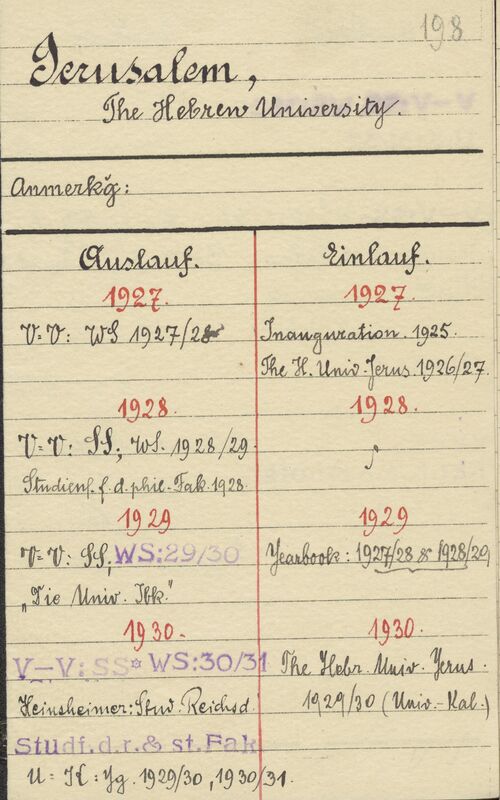 198
Jerusalem,
The Hebrew University.
Anmerkg̃:
Auslauf.
1927.
V.-V.: WS 1927/28
1928.
V.-V.: SS, WS. 1928/29.
Studienf. f. d. phil. Fak. 1928.
1929
V.-V.: SS, WS:29/30
„Die Univ. Ibk."
1930.
V—V:SS* WS:30/31
Heinsheimer: Stud. Reichsd.
Studf.d.r.& st.Fak
U.: K.: Jg. 1929/30, 1930/31.
Einlauf.
1927.
Inauguration. 1925.
The H. Univ. Jerus. 1926/27.
1928.
1929
Yearbook: 1927/28 & 1928/29
1930.
The Hebr. Univ. Yerus.
1929/30 (Univ.-Kal.)